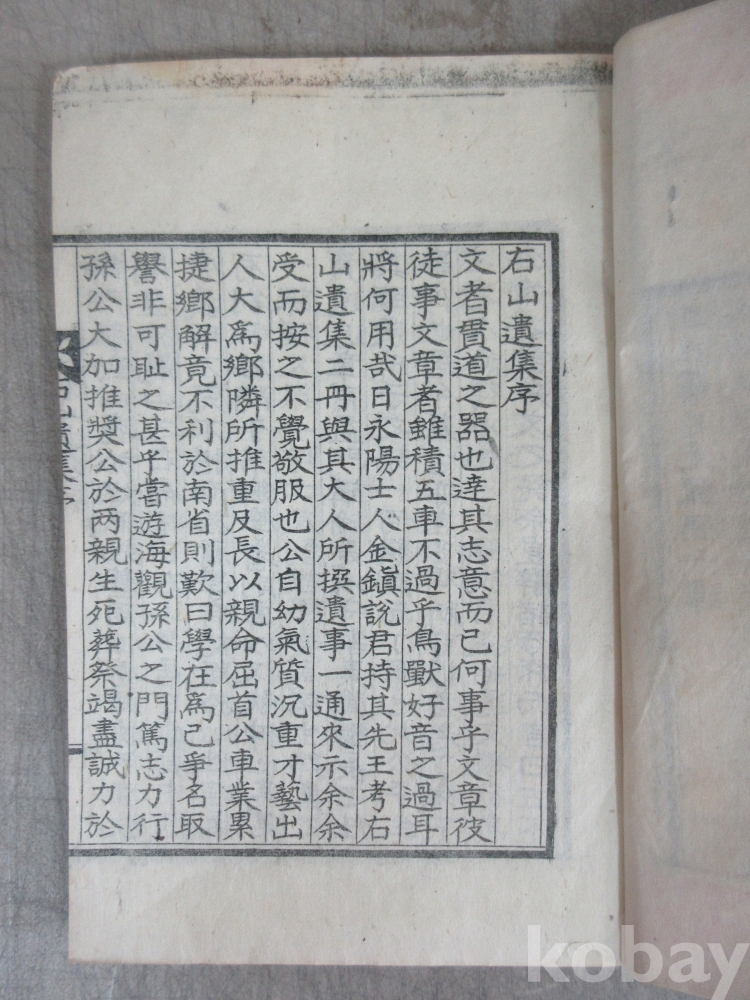 右山遺集序
文者貫道之器也達其志意而已何事乎文章彼
徒事文章者雖積五車不過乎鳥獸好音之過耳
將何用哉日永陽士人金鎭說君持其先王考右
山遺集二冊與其大人所撰遺事一通來示余余
受而按之不覺敬服也公自幼氣質沉重才藝出
人大爲鄕隣所推重及長以親命屈首公車業累
捷鄕解竟不利於南省則歎曰學在爲己爭名取
譽非可耻之甚乎嘗遊海觀孫公之門篤志力行
孫公大加推獎公於两親生死葬祭竭盡誠力於
右山遺集序
kobay